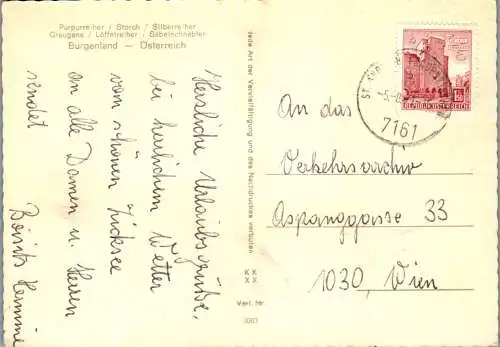 Purpurreiher / Storch / Silberreiher
Graugans / Löffelreiher / Säbelschnäbler
Burgenland — Österreich
Herzliche Urlaubsgrüße,
bei herrlichem Wetter
vom schönen Zicksee
an alle Damen u. Herren
sendet
Hermine
jede Art der Vervielfältigung und des Nachdruckes verboten
K K
X X
Verl. Nr.
7161
REPUBLIK ÖSTERREICH
An das
Verkehrsarchiv
Aspanggasse 33
1030, Wien